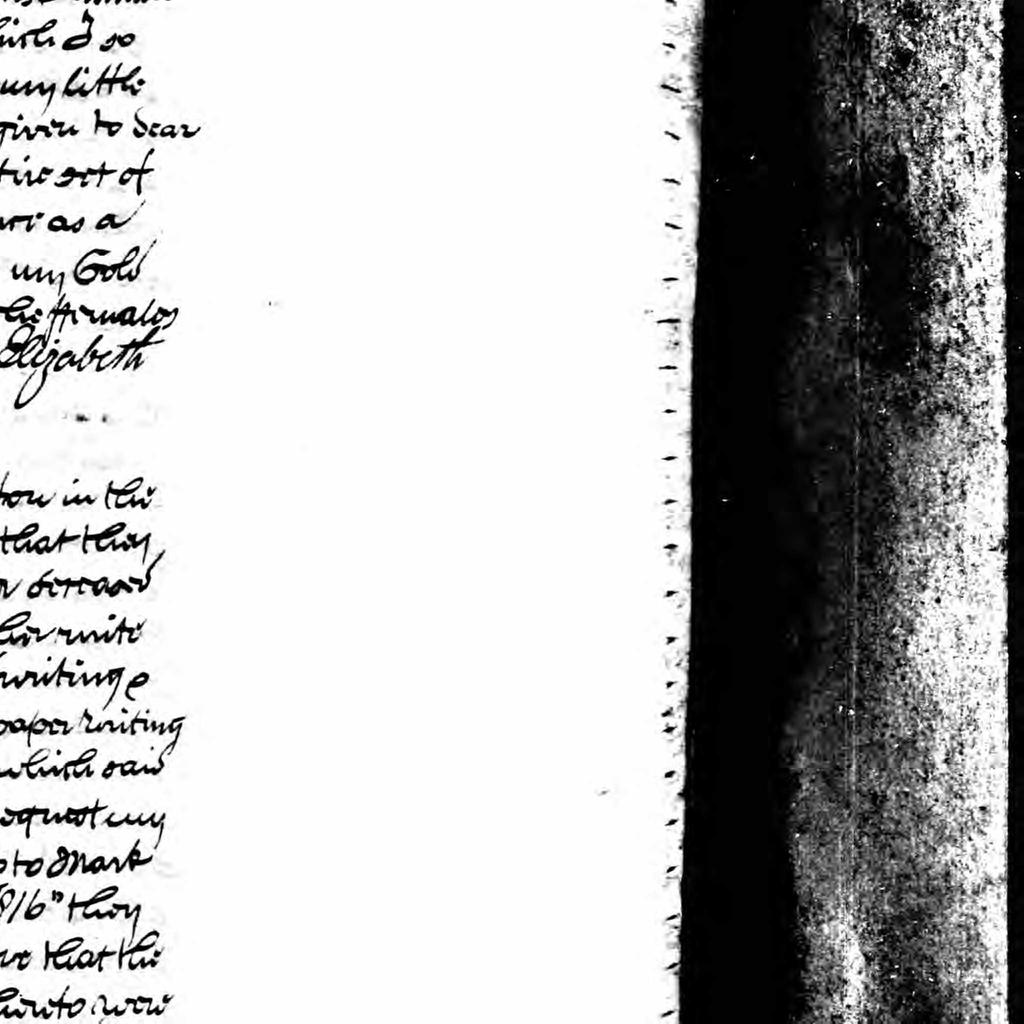 which I so
my little
given to dear
set of
as a
my Gold
the females
Elizabeth
in the
that they
deceased
her write
writing &
paper writing
which said
request my
to Mark
1816" they
that the
hereto were